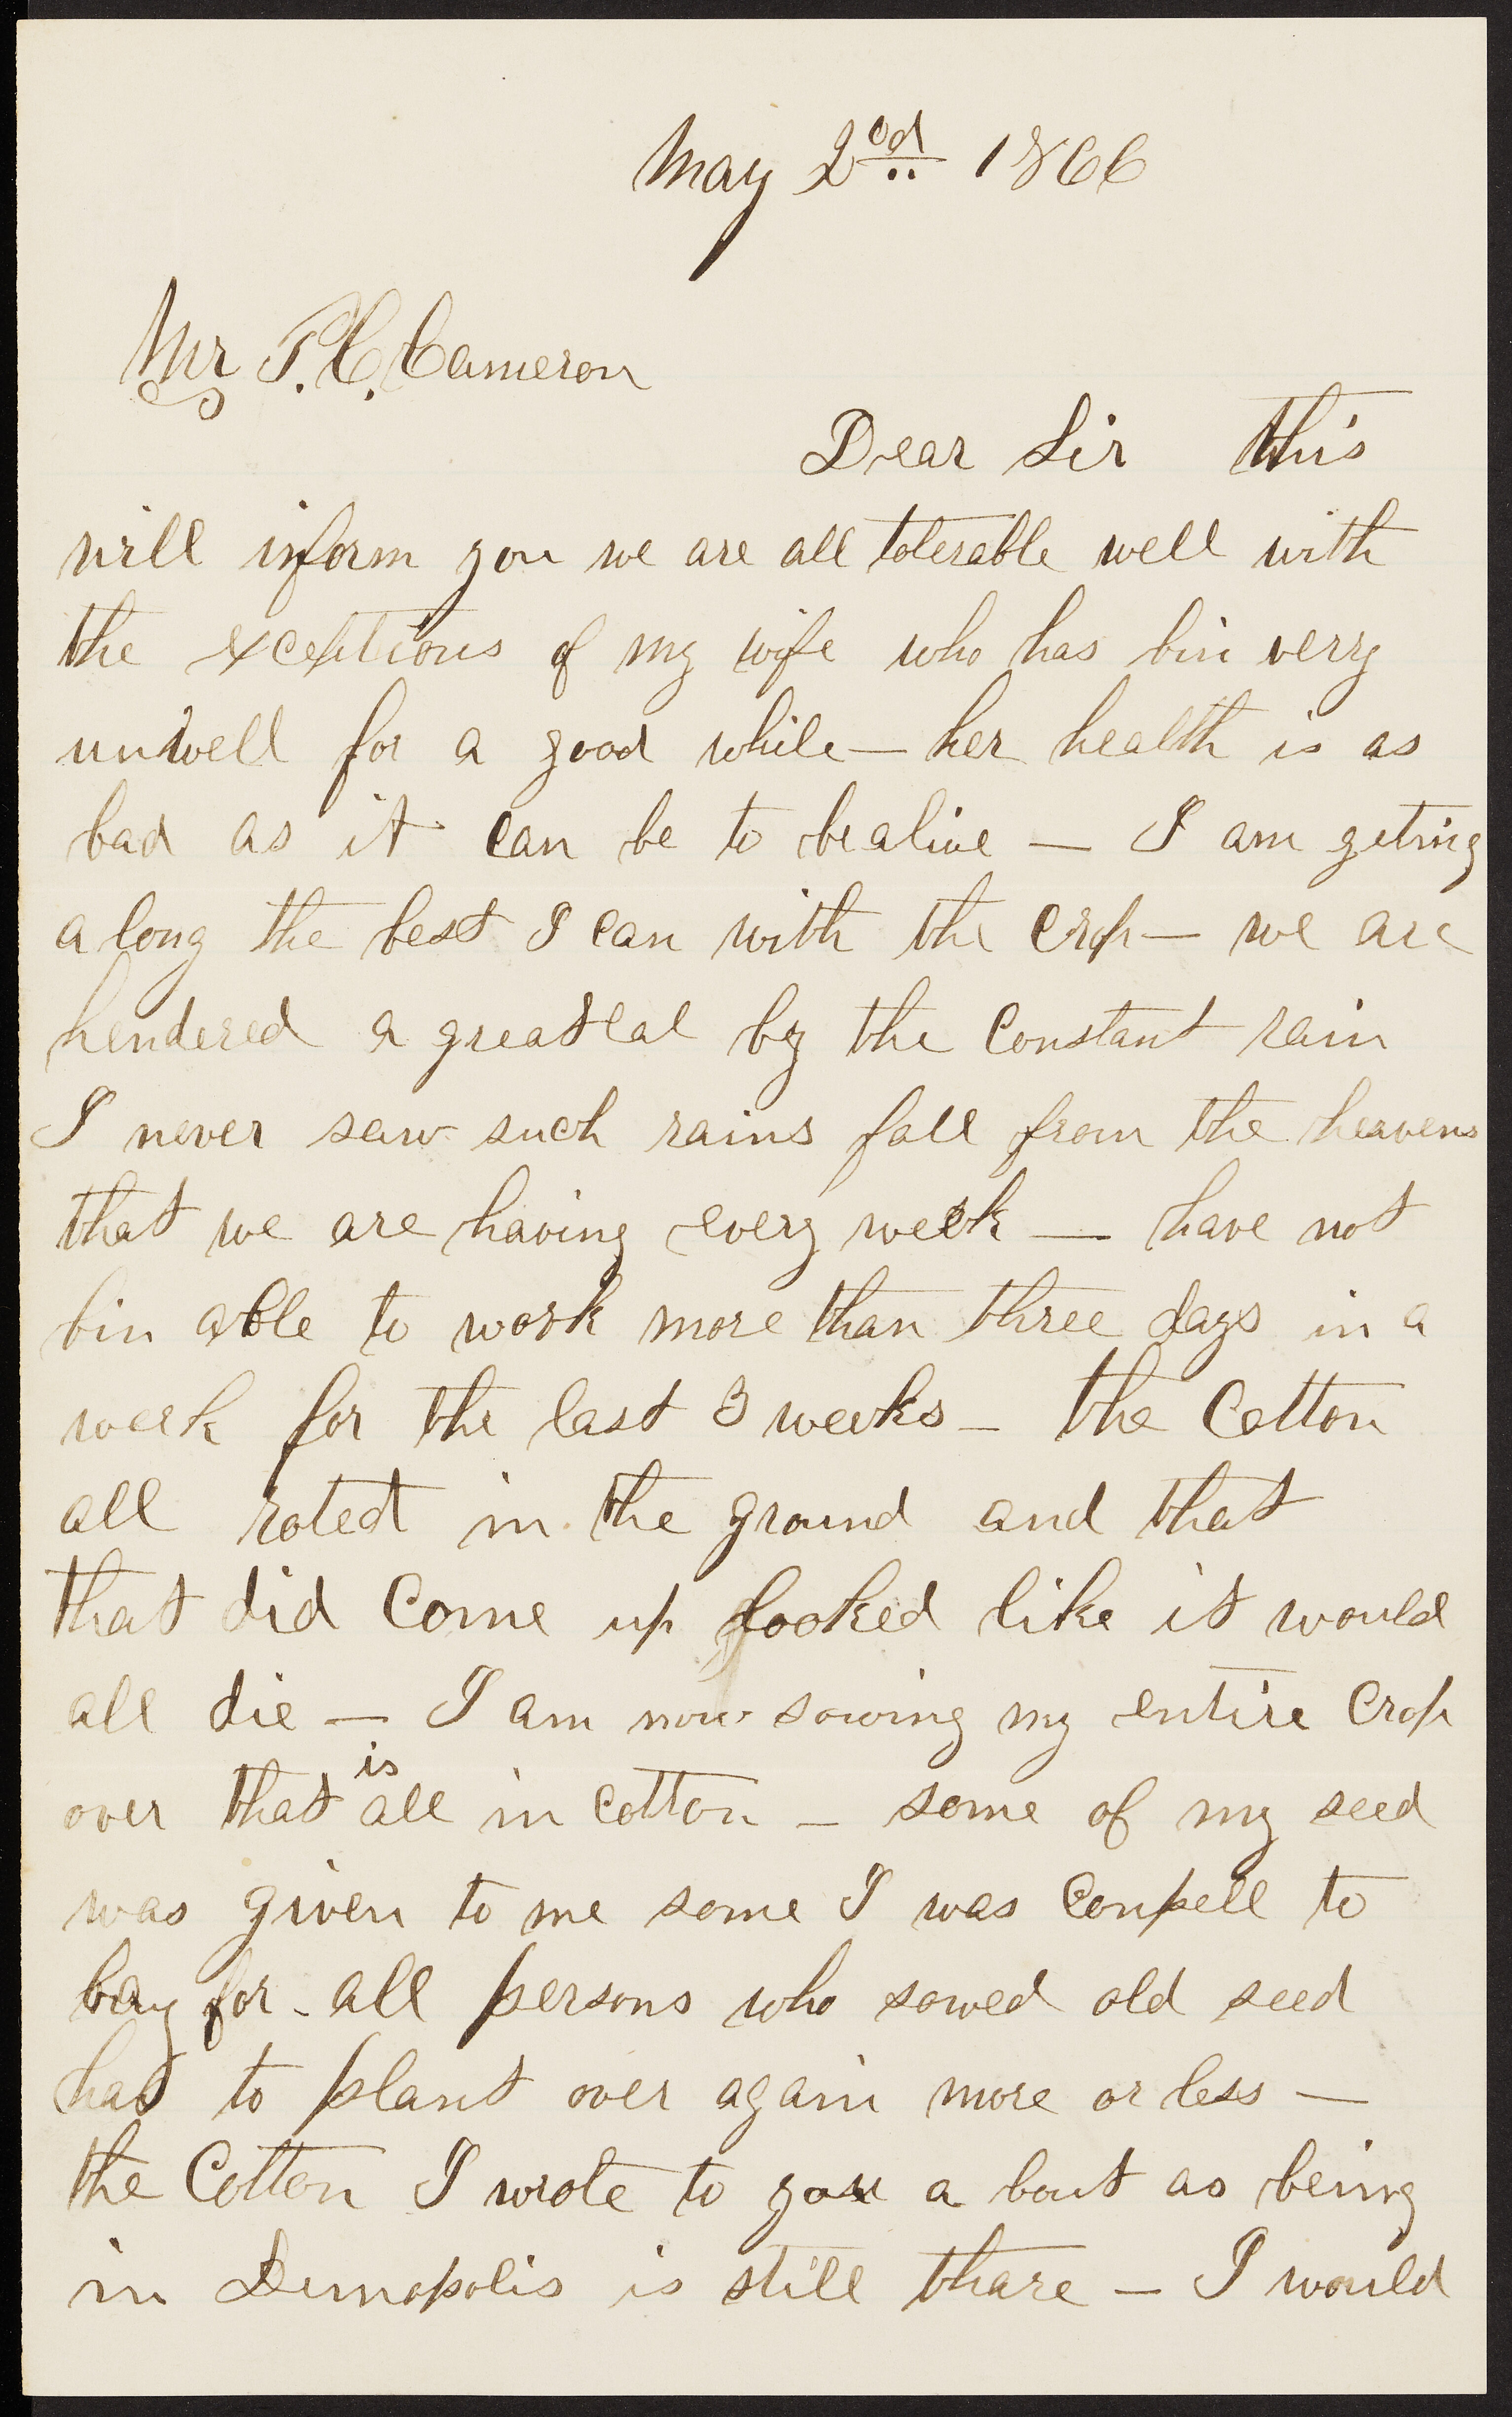 May 2cd 1866
Mr P.C. Cameron
Dear Sir this
will inform you we are all tolerable well with
the exceptions of my wife who has bin verry
unwell for a good while — her health is as
bad as it can be to be alive — I am geting
a long the best I can with the crop — we are
hendered a greateal by the Constant rain
I never saw such rains fall from the heavens
that we are having every week — have not
bin able to work more than three days in a
week for the last 3 weeks — the Cotton
all roted in the ground and that
that did Come up looked like it would
all die — I am now sowing my entire Crop
over that is all in Cotton — some of my seed
was given to me some I was Conpell to
bay for - all persons who sowed old seed
had to plant over again more or less —
the Cotton I wrote to you a bout as being
in Demopolis is still thare — I would